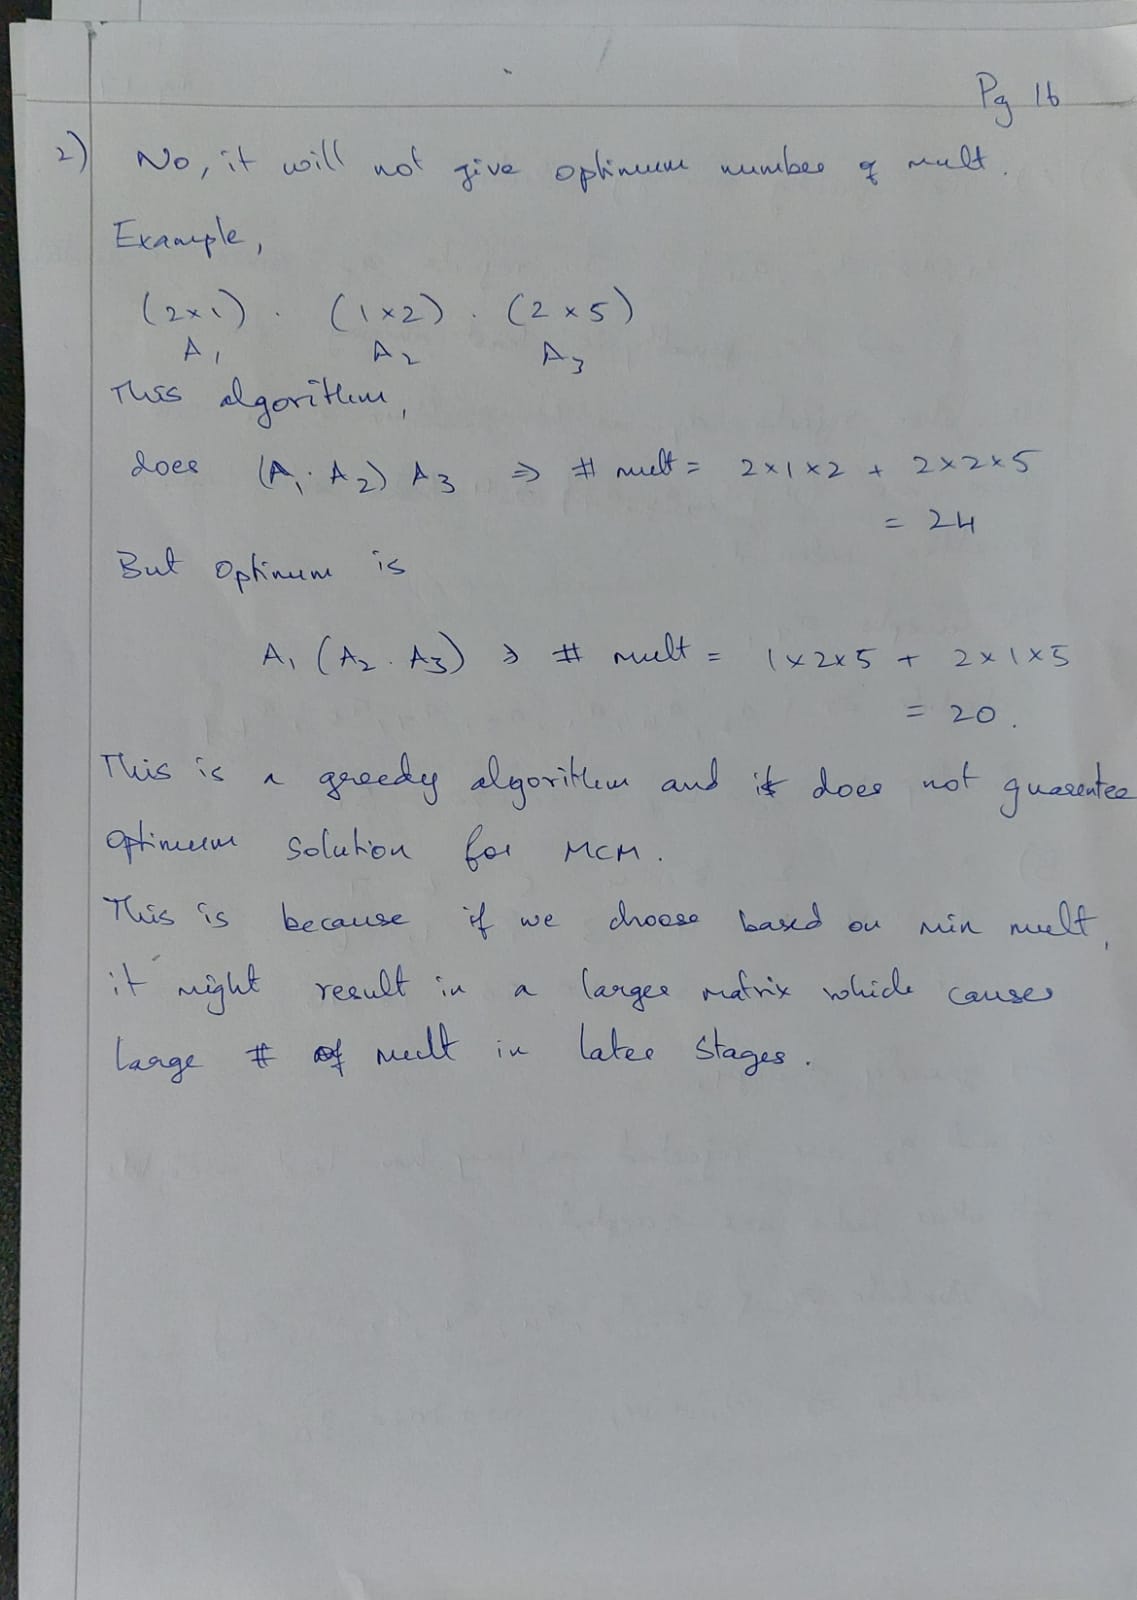 Pg 16
2) No, it will not give optimum number of mult.
Example,
(2×1) . (1×2) . (2×5)
A1 A2 A3
This algorithm,
does (A1 . A2) A3 ⇒ # mult = 2×1×2 + 2×2×5
= 24
But optimum is
A1 (A2 . A3) ⇒ # mult = 1×2×5 + 2×1×5
= 20.
This is a greedy algorithm and it does not guarentee
optimum solution for MCM.
This is because if we choose based on min mult,
it might result in a larger matrix which causes
large # of mult in later stages.